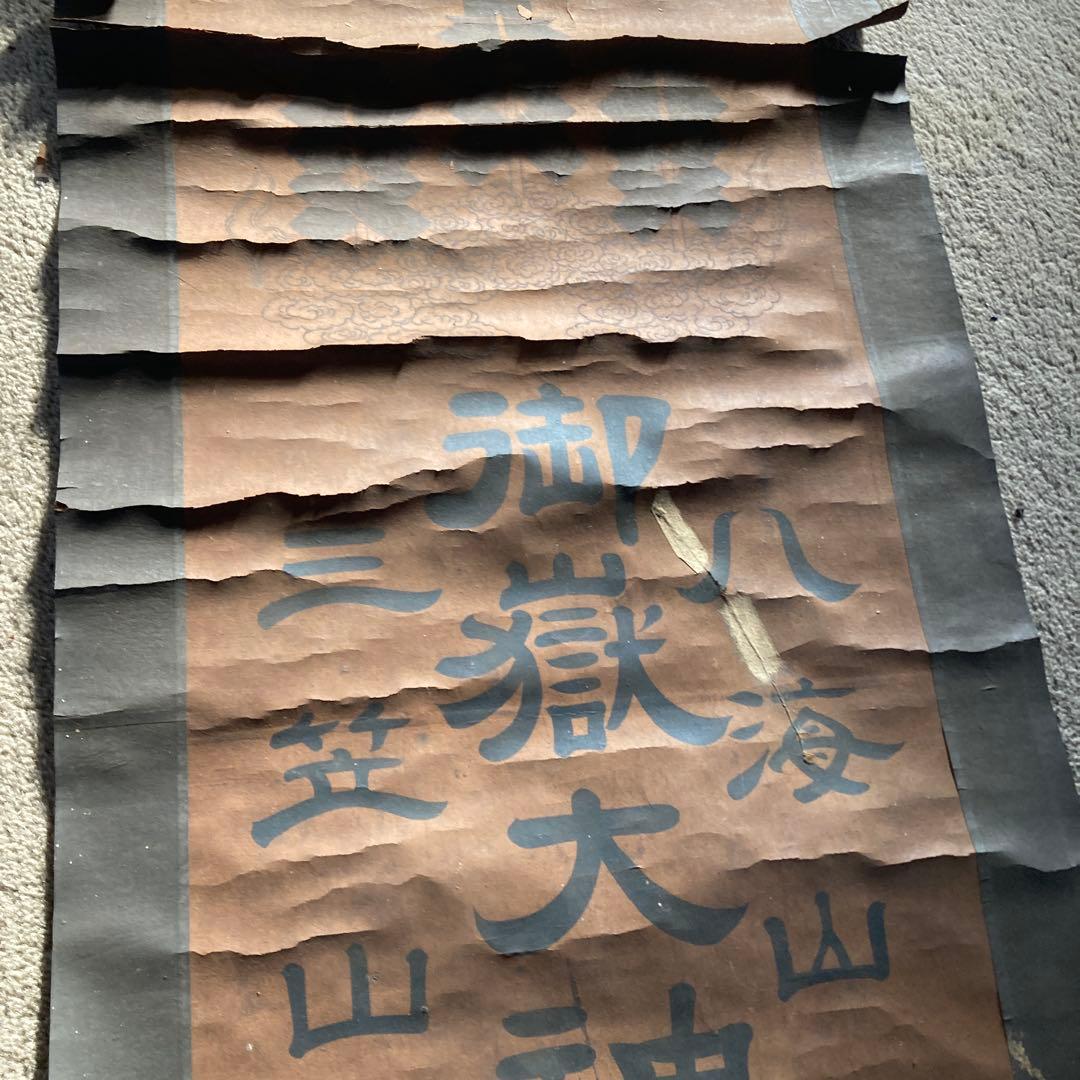 八海山
御嶽大神
三笠山